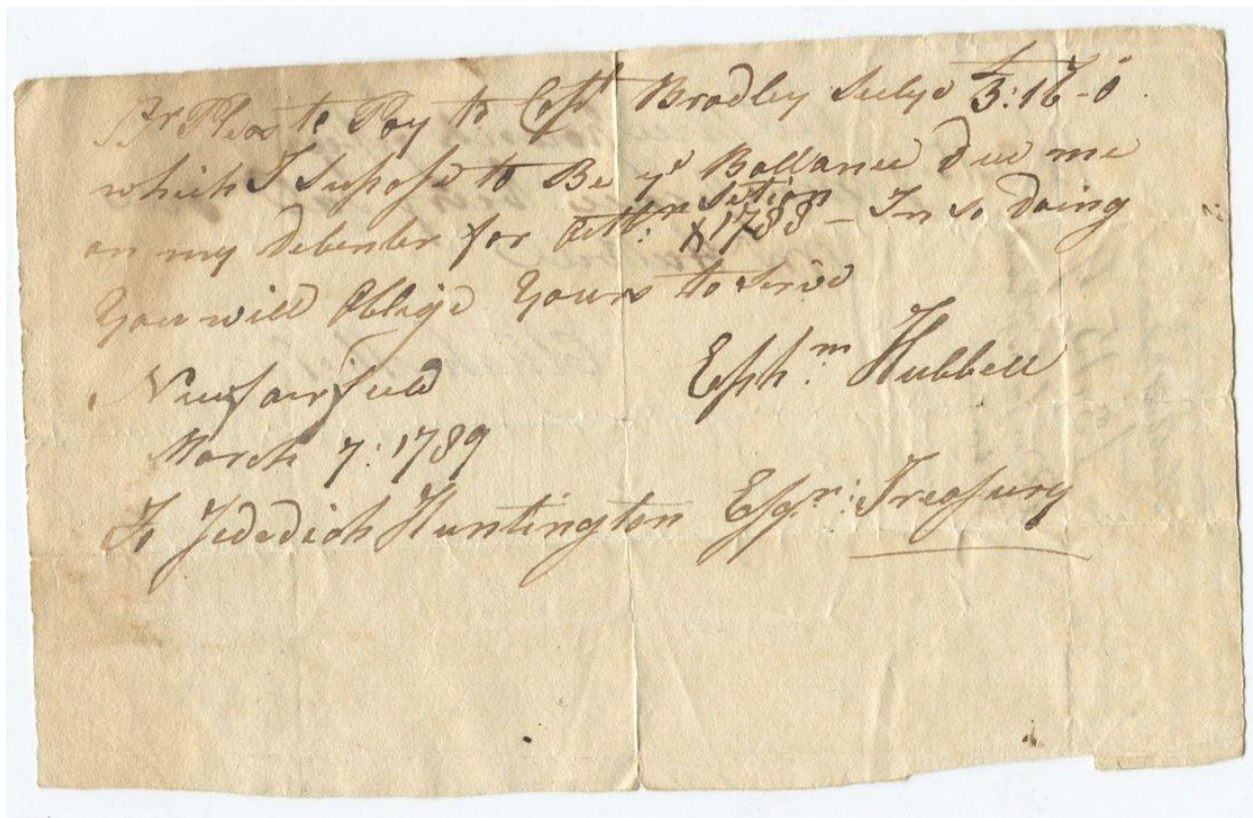 Sr Pleas to Pay to Capt Bradley Seelye £3:16-0
which I Suposse to Be ye Ballance due me
on my debenter for Octbr Setion 1788 - In so doing
You will Oblige Yours to Serve
Ephm Hubbell
Newfairfield
March 7: 1789
To Jededioh Huntington Esqr: Treasury